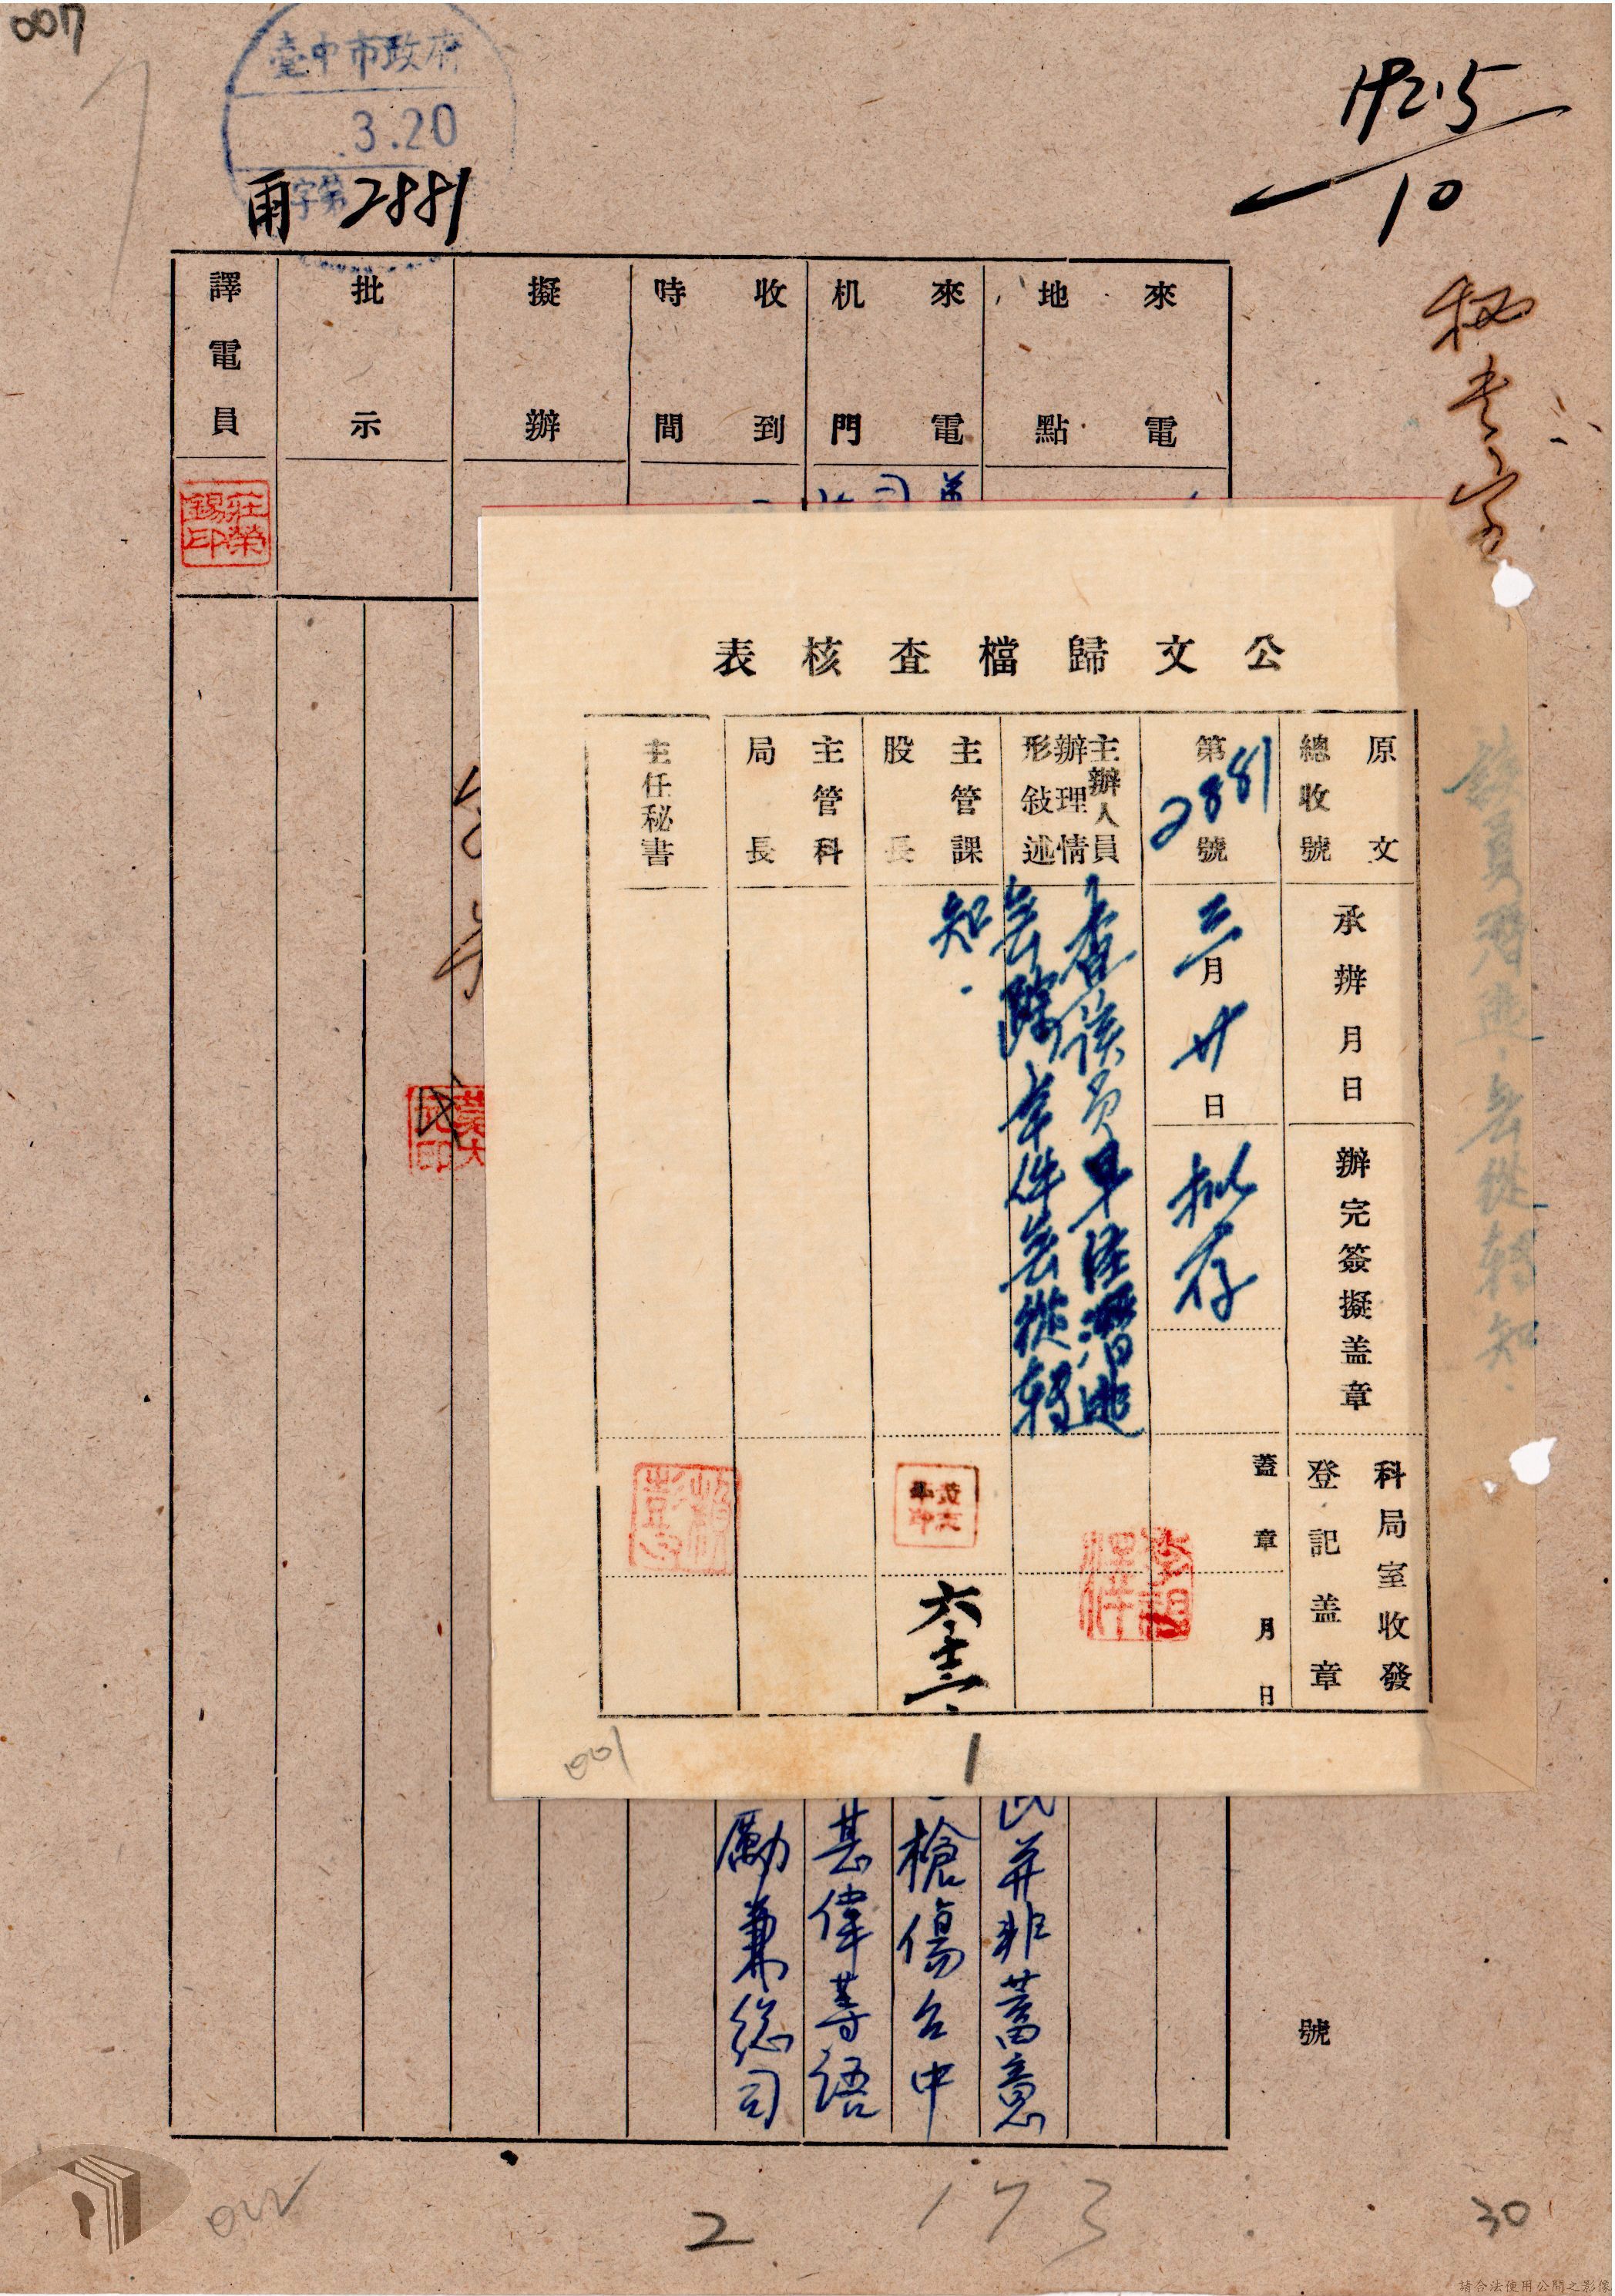 007
臺中市政府
3.20
字第
雨 2881
142.5
10
秘老字
來電地點
來電机門
收到時間
擬辦
批示
譯電員
莊榮錫印
公文歸檔查核表
原文總收號
承辦月日
辦完簽擬盖章
科局室收發登記盖章
第2881號
三月廿日
拟存
蓋章
月日
主辦人員辦理情形敍述
查該員早經潛逃
無踪本件無從轉
知.
主管課股長
六、十三、
主管科局長
主任秘書
該員潛逃無從轉知
民并非蓄意
槍傷台中
甚偉等語
勵兼総司
號
001
1
002
2
173
30
請合法使用公開之影像